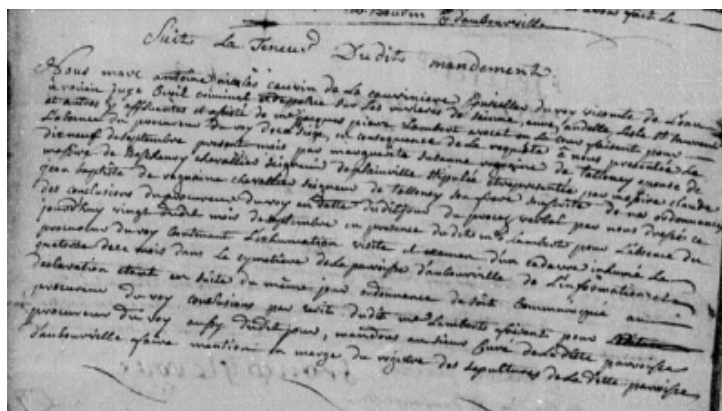 Boudin Daubouville
Suit La Teneur Dudits mandement.
Nous marc antoine nicolas cauvin de La cauviniere Conseiller du roy vicomte de L'eau
à rouen juge Civil criminel et de police sur Les rivieres de seinne, eure, andelle, Leste St
et autres y affluentes assisté de me jacques pierre Lambert avocat en La Cour faisant pour
L'absence du procureur du roy de ce siege, en consequence de La requeste à nous presentée Le
dixneuf de septembre present mois par marguerite susanne vegnine de tallenay epouse de
messire de Boisdenery chevallier seigneur stipulée et representée par messire claude
jean baptiste de chevallier seigneur de tallenay son frere ensuitte de nos ordonnances
des conclusions du procureur du roy en datte dudit jour du procez verbal par nous dressé ce
jourdhuy vingt dudit mois de septembre en presence dudit me Lambert pour L'absence du
procureur du roy Contenant L'exhumation visite et examen d'un cadavre inhumé Le
quatorze de ce mois dans Le cymetiere de La parroisse daubouville de L'information et de
declaration étant en suite du même jour ordonnance de soit Communiqué au
procureur du roy conclusions par ecrit dudit me Lambert faisant pour
procureur du roy aussy dudit jour, mandons au sieur Curé de Laditte parroisse
daubouville faire mention en marge du registre des sepultures de Laditte parroisse